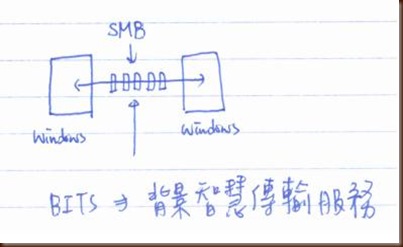 SMB
Windows Windows
BITS ⇒ 背景智慧傳輸服務